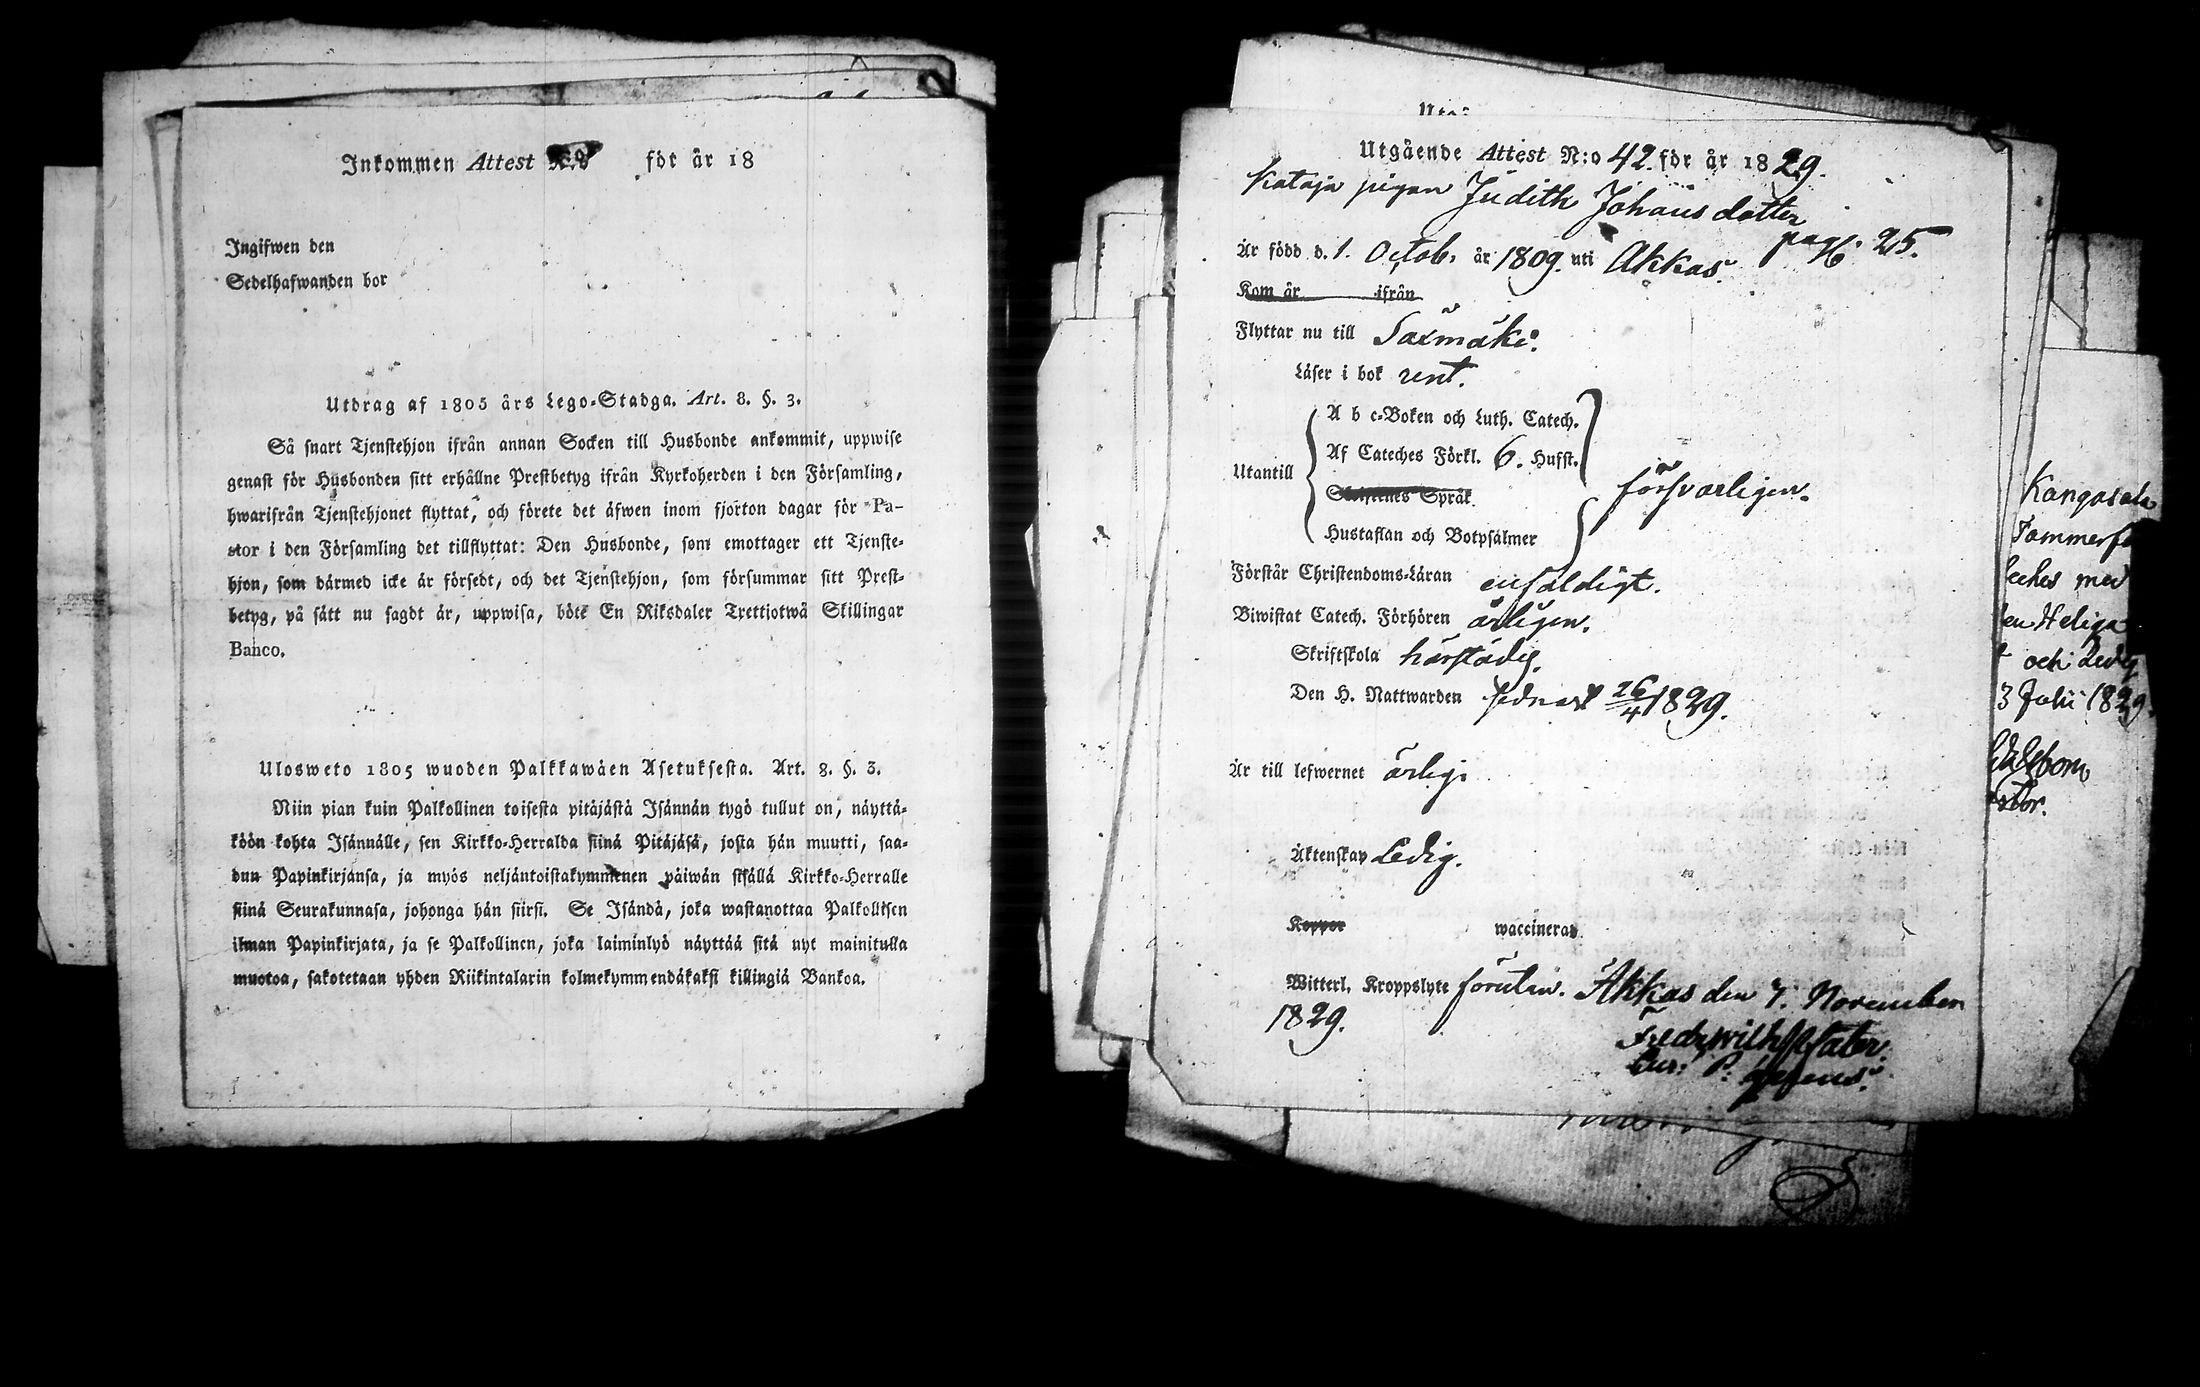 Inkommen Attest N:o för år 18
Ingifwen den
Sedelhafwanden bor
Utdrag af 1805 års Lego-Stadga. Art. 8. §. 3.
Så snart Tjenstehjon ifrån annan Socken till Husbonde ankommit, uppwise
genast för Husbonden sitt erhållne Prestbetyg ifrån Kyrkoherden i den Församling,
hwarifrån Tjenstehjonet flyttat, och förete det äfwen inom fjorton dagar för Pa-
stor i den Församling det tillflyttat: Den Husbonde, som emottager ett Tjenste-
hjon, som därmed icke är försedt, och det Tjenstehjon, som försummar sitt Prest-
betyg, på sätt nu sagdt är, uppwisa, böte En Riksdaler Trettiotwå Skillingar
Banco.
Ulosweto 1805 wuoden Palkkawäen Asetuksesta. Art. 8. §. 3.
Niin pian kuin Palkollinen toisesta pitäjästä Isännän tygö tullut on, näyttä-
köön kohta Isännälle, sen Kirkko-Herralda siinä Pitäjäsä, josta hän muutti, saa-
dun Papinkirjansa, ja myös neljäntoistakymmenen päiwän sisällä Kirkko-Herralle
siinä Seurakunnasa, johonga hän siirsi. Se Isändä, joka wastanottaa Palkollisen
ilman Papinkirjata, ja se Palkollinen, joka laiminlyö näyttää sitä nyt mainitulla
muotoa, sakotetaan yhden Riikintalarin kolmekymmendäkaksi killingiä Bankoa.
Utgående Attest N:o 42. för år 1829.
Kataja pigan Judith Johansdotter
pag. 25.
Är född d. 1. Octob. år 1809. uti Akkas.
Kom år ifrån
Flyttar nu till Saxmäki.
Läser i bok rent.
A b c-Boken och Luth. Catech.
Af Cateches Förkl. 6. Hufst.
Utantill
Skriftenes Språk
försvarligen.
Hustaflan och Botpsalmer
Förstår Christendoms-Läran enfaldigt.
Biwistat Catech. Förhören årligen.
Skriftskola härstädes.
Den H. Nattwarden sednast 26/4 1829.
Är till lefwernet ärlig.
Äktenskap Ledig.
Koppor waccinerad
Witterl. Kroppslyte förutan. Akkas den 7. November
1829.
Kangasala
och Ledig
3 Julii 1829.